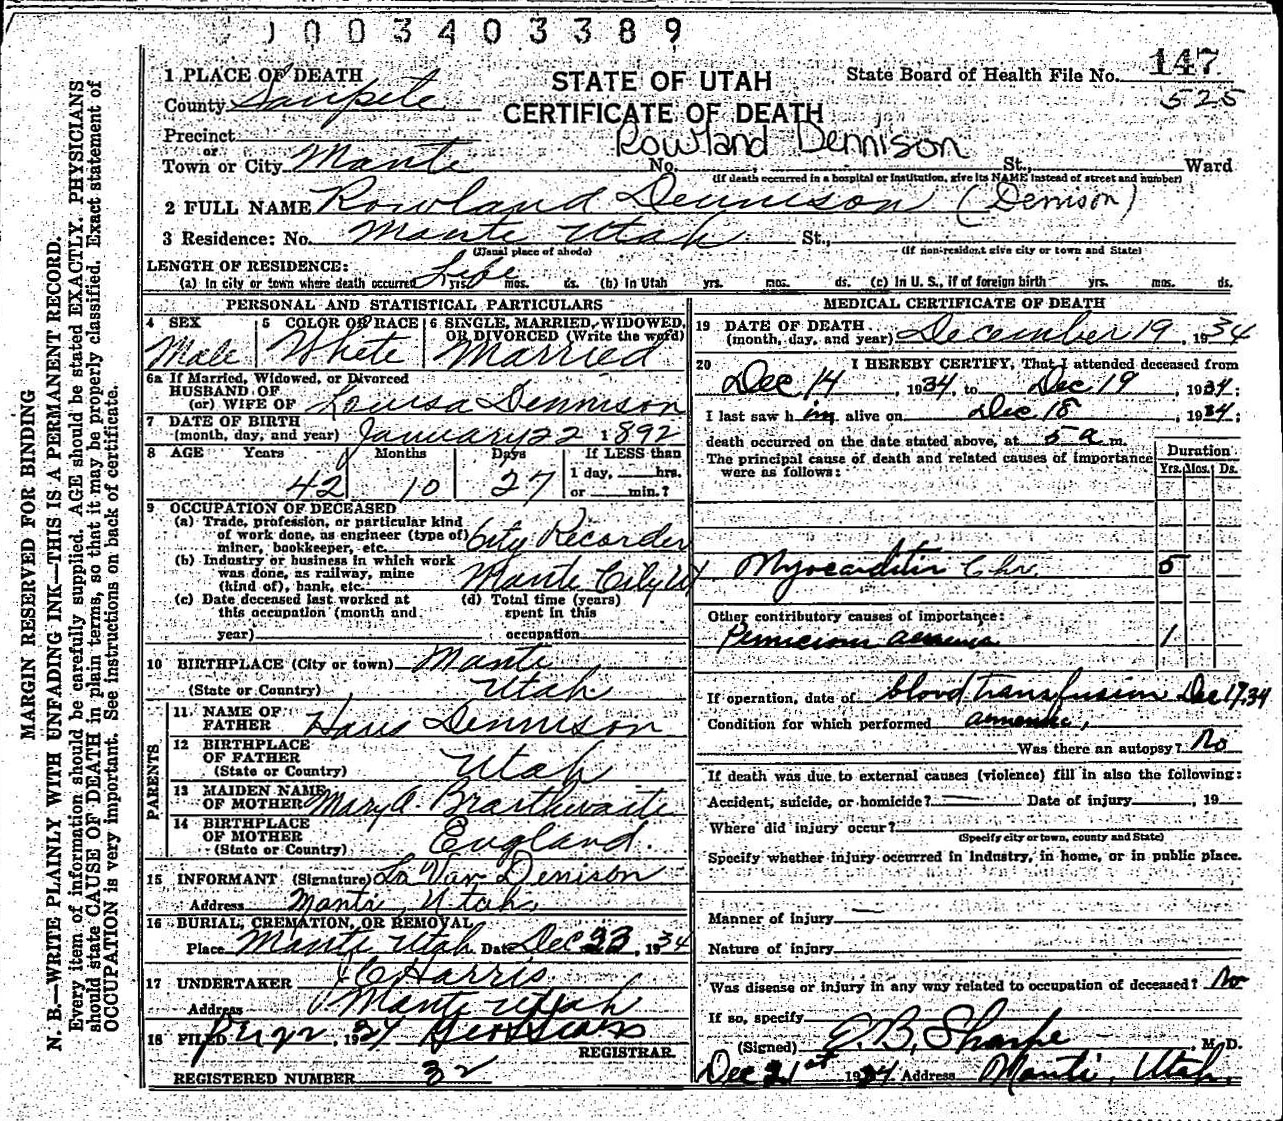 1003403389
147
525
STATE OF UTAH
CERTIFICATE OF DEATH
State Board of Health File No.
1 PLACE OF DEATH
County Sanpete
Precinct
or
Town or City Manti
Rowland Dennison
No. St., Ward
(If death occurred in a hospital or institution, give its NAME instead of street and number)
2 FULL NAME Rowland Dennison (Denison)
3 Residence: No. Manti Utah St.,
(Usual place of abode) (If non-resident give city or town and State)
LENGTH OF RESIDENCE:
(a) In city or town where death occurred Life yrs. mos. ds. (b) In Utah yrs. mos. ds. (c) In U. S., if of foreign birth yrs. mos. ds.
PERSONAL AND STATISTICAL PARTICULARS
4 SEX
Male
5 COLOR OR RACE
White
6 SINGLE, MARRIED, WIDOWED,
OR DIVORCED (Write the word)
Married
6a If Married, Widowed, or Divorced
HUSBAND OF
(or) WIFE OF Louisa Dennison
7 DATE OF BIRTH
(month, day, and year) January 22 1892
8 AGE Years Months Days If LESS than
1 day, hrs.
42 10 27 or min.?
9 OCCUPATION OF DECEASED
(a) Trade, profession, or particular kind
of work done, as engineer (type of)
miner, bookkeeper, etc. City Recorder
(b) Industry or business in which work
was done, as railway, mine
(kind of), bank, etc. Manti City Ut
(c) Date deceased last worked at
this occupation (month and
year)
(d) Total time (years)
spent in this
occupation
10 BIRTHPLACE (City or town) Manti
(State or Country) Utah
PARENTS
11 NAME OF
FATHER Hans Dennison
12 BIRTHPLACE
OF FATHER
(State or Country) Utah
13 MAIDEN NAME
OF MOTHER Mary A. Braithwaite
14 BIRTHPLACE
OF MOTHER
(State or Country) England.
15 INFORMANT (Signature) La Var Denison
Address Manti, Utah.
16 BURIAL, CREMATION, OR REMOVAL
Place Manti Utah Date Dec 23, 1934
17 UNDERTAKER J C Harris
Address Manti Utah
18 FILED , 1934
REGISTRAR.
REGISTERED NUMBER 32
MEDICAL CERTIFICATE OF DEATH
19 DATE OF DEATH
(month, day, and year) December 19, 1934
20 I HEREBY CERTIFY, That I attended deceased from
Dec 14, 1934, to Dec 19, 1934;
I last saw h im alive on Dec 18, 1934;
death occurred on the date stated above, at 5 a m.
The principal cause of death and related causes of importance
were as follows:
Duration
Yrs. Mos. Ds.
Myocarditis Chr. 5
Other contributory causes of importance:
Pernicious anemia 1
If operation, date of blood transfusion Dec 17, 34
Condition for which performed
Was there an autopsy? No
If death was due to external causes (violence) fill in also the following:
Accident, suicide, or homicide? Date of injury , 19
Where did injury occur?
(Specify city or town, county and State)
Specify whether injury occurred in industry, in home, or in public place.
Manner of injury
Nature of injury
Was disease or injury in any way related to occupation of deceased? No
If so, specify
(Signed) E. B. Sharpe M. D.
Dec 21st 1934 Address Manti, Utah.
MARGIN RESERVED FOR BINDING
N. B.—WRITE PLAINLY WITH UNFADING INK—THIS IS A PERMANENT RECORD.
Every item of information should be carefully supplied. AGE should be stated EXACTLY. PHYSICIANS
should state CAUSE OF DEATH in plain terms, so that it may be properly classified. Exact statement of
OCCUPATION is very important. See instructions on back of certificate.